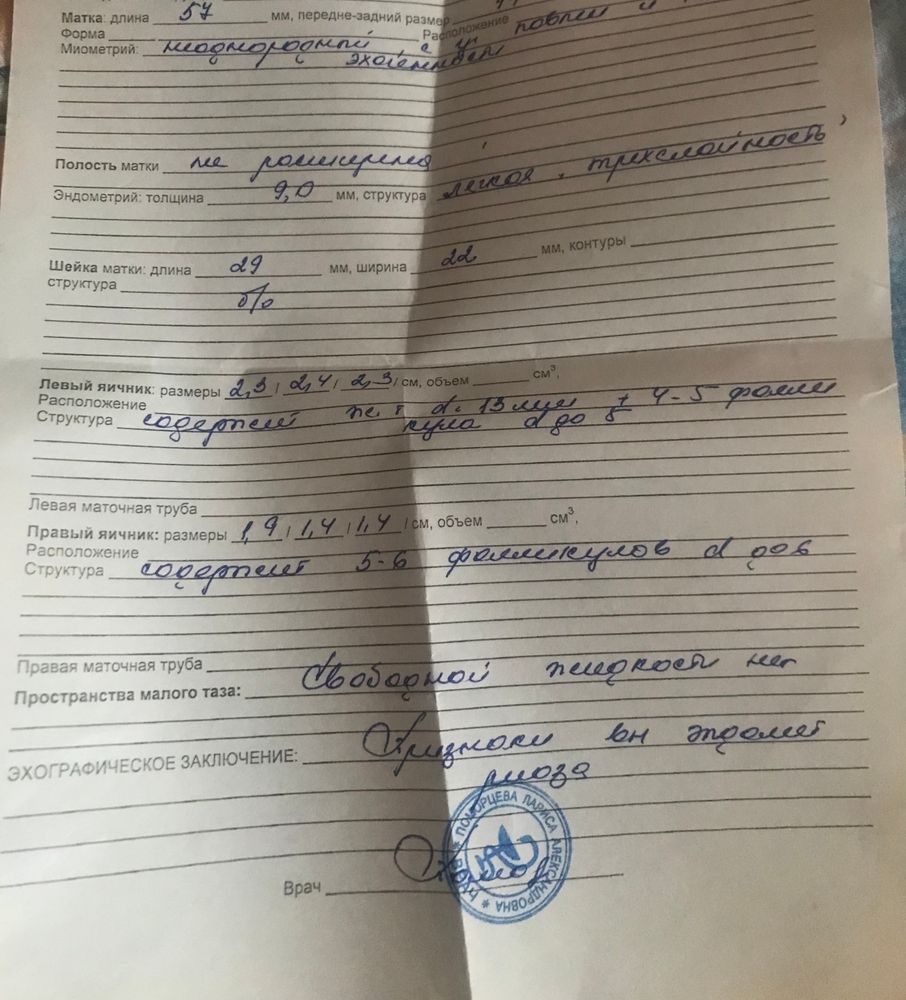 Матка: длина 57 мм, передне-задний размер
Форма Расположение
Миометрий: неоднородный, с уч повыш
эхогенности
Полость матки не расширена
Эндометрий: толщина 9,0 мм, структура легкая трехслойность
Шейка матки: длина 29 мм, ширина 22 мм, контуры
структура б/о
Левый яичник: размеры 2,3 / 2,4 / 2,3 / см, объем см³,
Расположение
Структура содержит ж.т d. 13 мм + 4-5 фолли
кула d до 5
Левая маточная труба
Правый яичник: размеры 1,9 / 1,4 / 1,4 / см, объем см³,
Расположение
Структура содержит 5-6 фолликулов d до 6
Правая маточная труба
Пространства малого таза: Свободной жидкости нет
ЭХОГРАФИЧЕСКОЕ ЗАКЛЮЧЕНИЕ: Признаки вн эндомет
риоза
Врач
ЛАРИСА АЛЕКСАНДРОВНА * ВРАЧ *